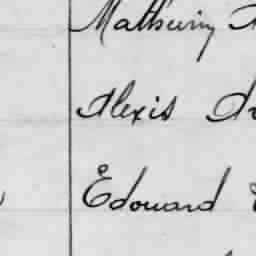 Mathurin
Alexis
Edouard